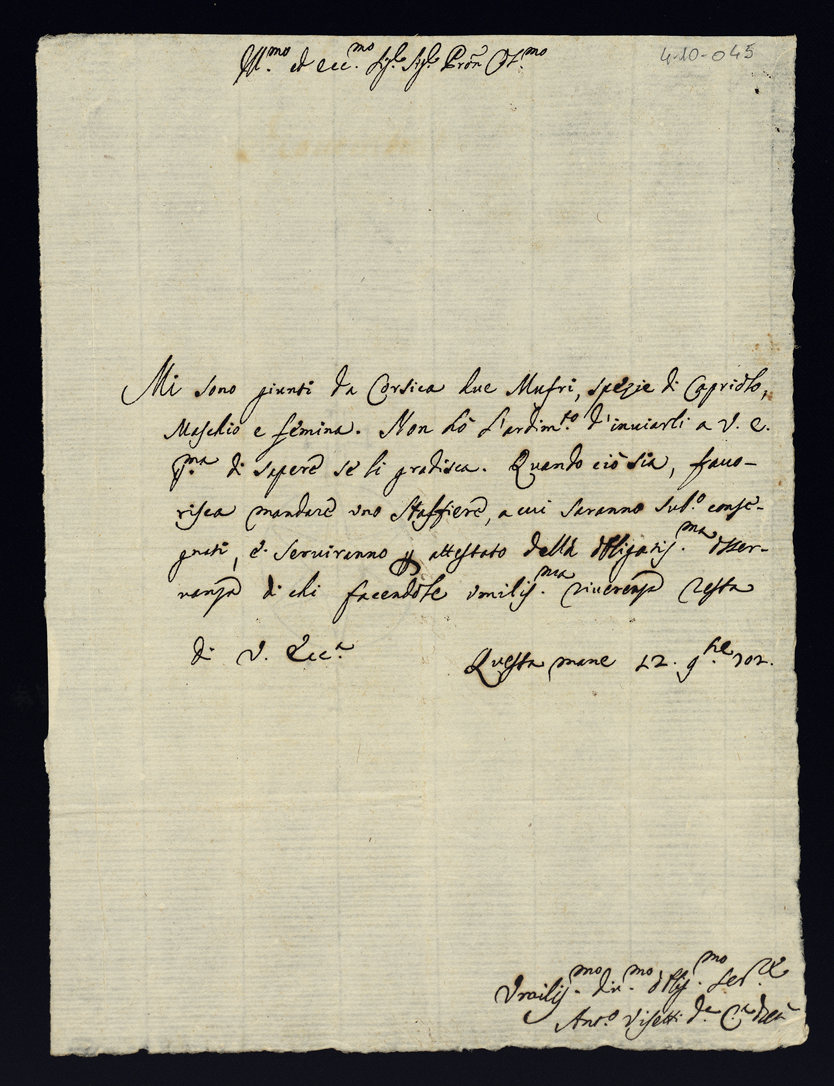 Ill.mo et Ecc.mo Sig.e Sig.e Pron Col.mo
4-10-045
Mi sono giunti da Corsica due Mufri, spezie di Capriolo,
Maschio e femina. Non hò l'ardim.to d'inviarli a V. E.
p.ma di sapere se li gradisca. Quando ciò sia, favo-
risca mandare uno Staffiere, a cui saranno sub.o conse-
gnati, e serviranno p attestato della obligatis.ma osser-
vanza di chi facendole umilis.ma riverenza resta
di V. Ecc.a
Questa mane 12. 9.bre 702.
Umilis.mo div.mo oblig.mo Ser.re
Ant.o Visetti